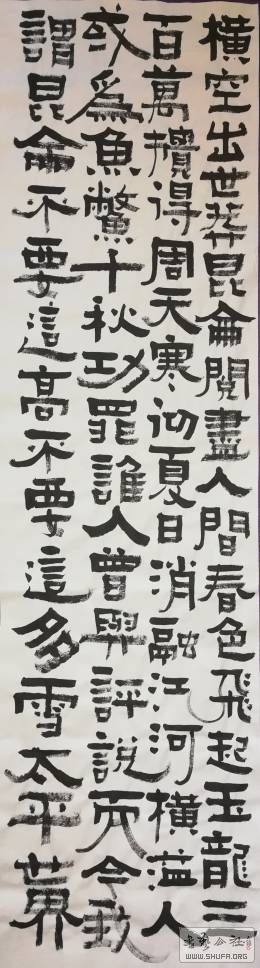 橫空出世莽昆侖閱盡人間春色飛起玉龍三
百萬攪得周天寒彻夏日消融江河橫溢人
或爲魚鱉千秋功罪誰人曾與評說而今我
謂昆侖不要這高不要這多雪太平世界
WWW.SHUFA.ORG